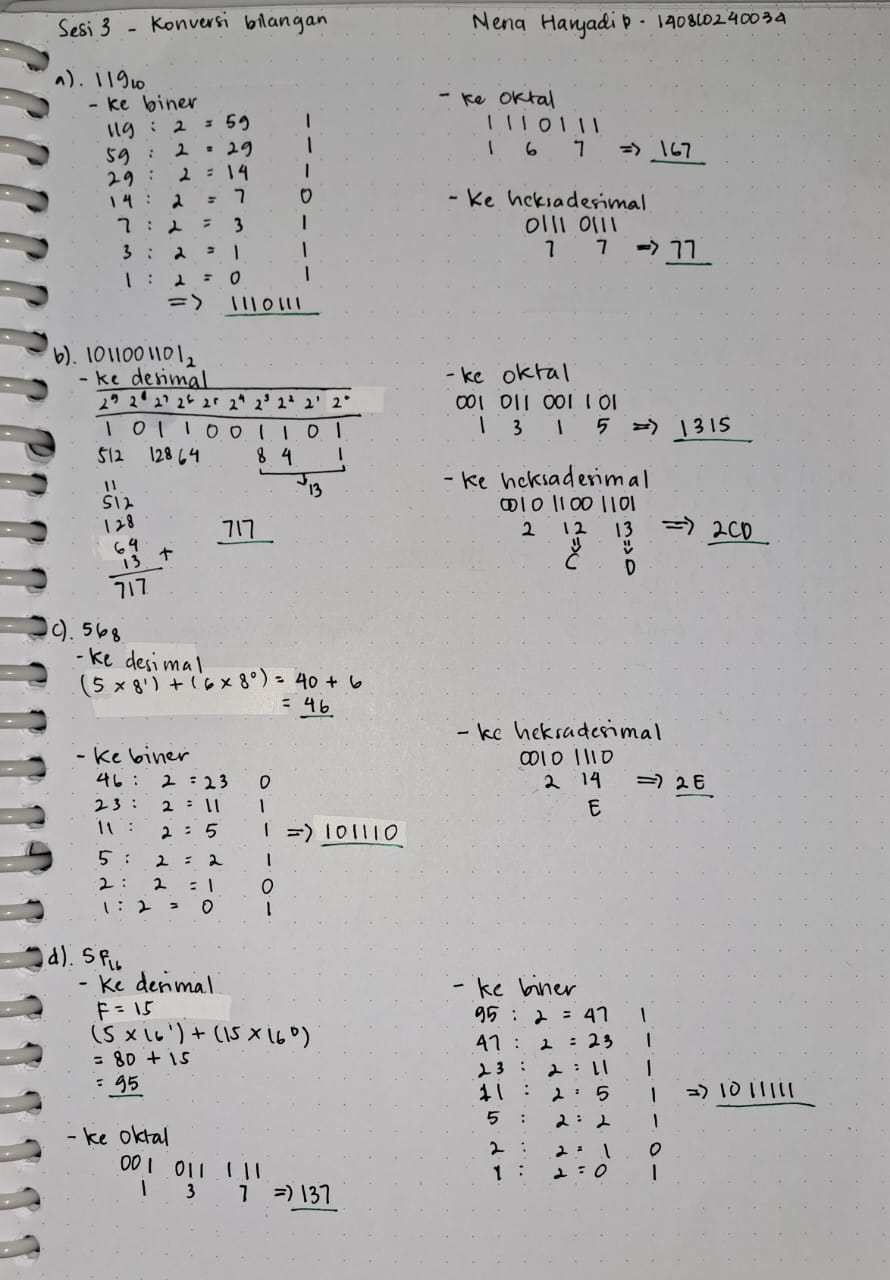 Sesi 3 - Konversi bilangan
Nena Haryadi P - 140810240034
a). 119₁₀
- ke biner
119 : 2 = 59 1
59 : 2 = 29 1
29 : 2 = 14 1
14 : 2 = 7 0
7 : 2 = 3 1
3 : 2 = 1 1
1 : 2 = 0 1
=> 1110111
- ke oktal
1 110 111
1 6 7 => 167
- ke heksadesimal
0111 0111
7 7 => 77
b). 1011001101₂
- ke desimal
2⁹ 2⁸ 2⁷ 2⁶ 2⁵ 2⁴ 2³ 2² 2¹ 2⁰
1 0 1 1 0 0 1 1 0 1
512 128 64 8 4 1
13
11
512
128
64
13 +
717
717
- ke oktal
001 011 001 101
1 3 1 5 => 1315
- ke heksadesimal
0010 1100 1101
2 12 13 => 2CD
C D
c). 56₈
- ke desimal
(5 x 8¹) + (6 x 8⁰) = 40 + 6
= 46
- ke biner
46 : 2 = 23 0
23 : 2 = 11 1
11 : 2 = 5 1 => 101110
5 : 2 = 2 1
2 : 2 = 1 0
1 : 2 = 0 1
- ke heksadesimal
0010 1110
2 14 => 2E
E
d). 5F₁₆
- ke desimal
F = 15
(5 x 16¹) + (15 x 16⁰)
= 80 + 15
= 95
- ke oktal
001 011 111
1 3 7 => 137
- ke biner
95 : 2 = 47 1
47 : 2 = 23 1
23 : 2 = 11 1
11 : 2 = 5 1 => 1011111
5 : 2 = 2 1
2 : 2 = 1 0
1 : 2 = 0 1